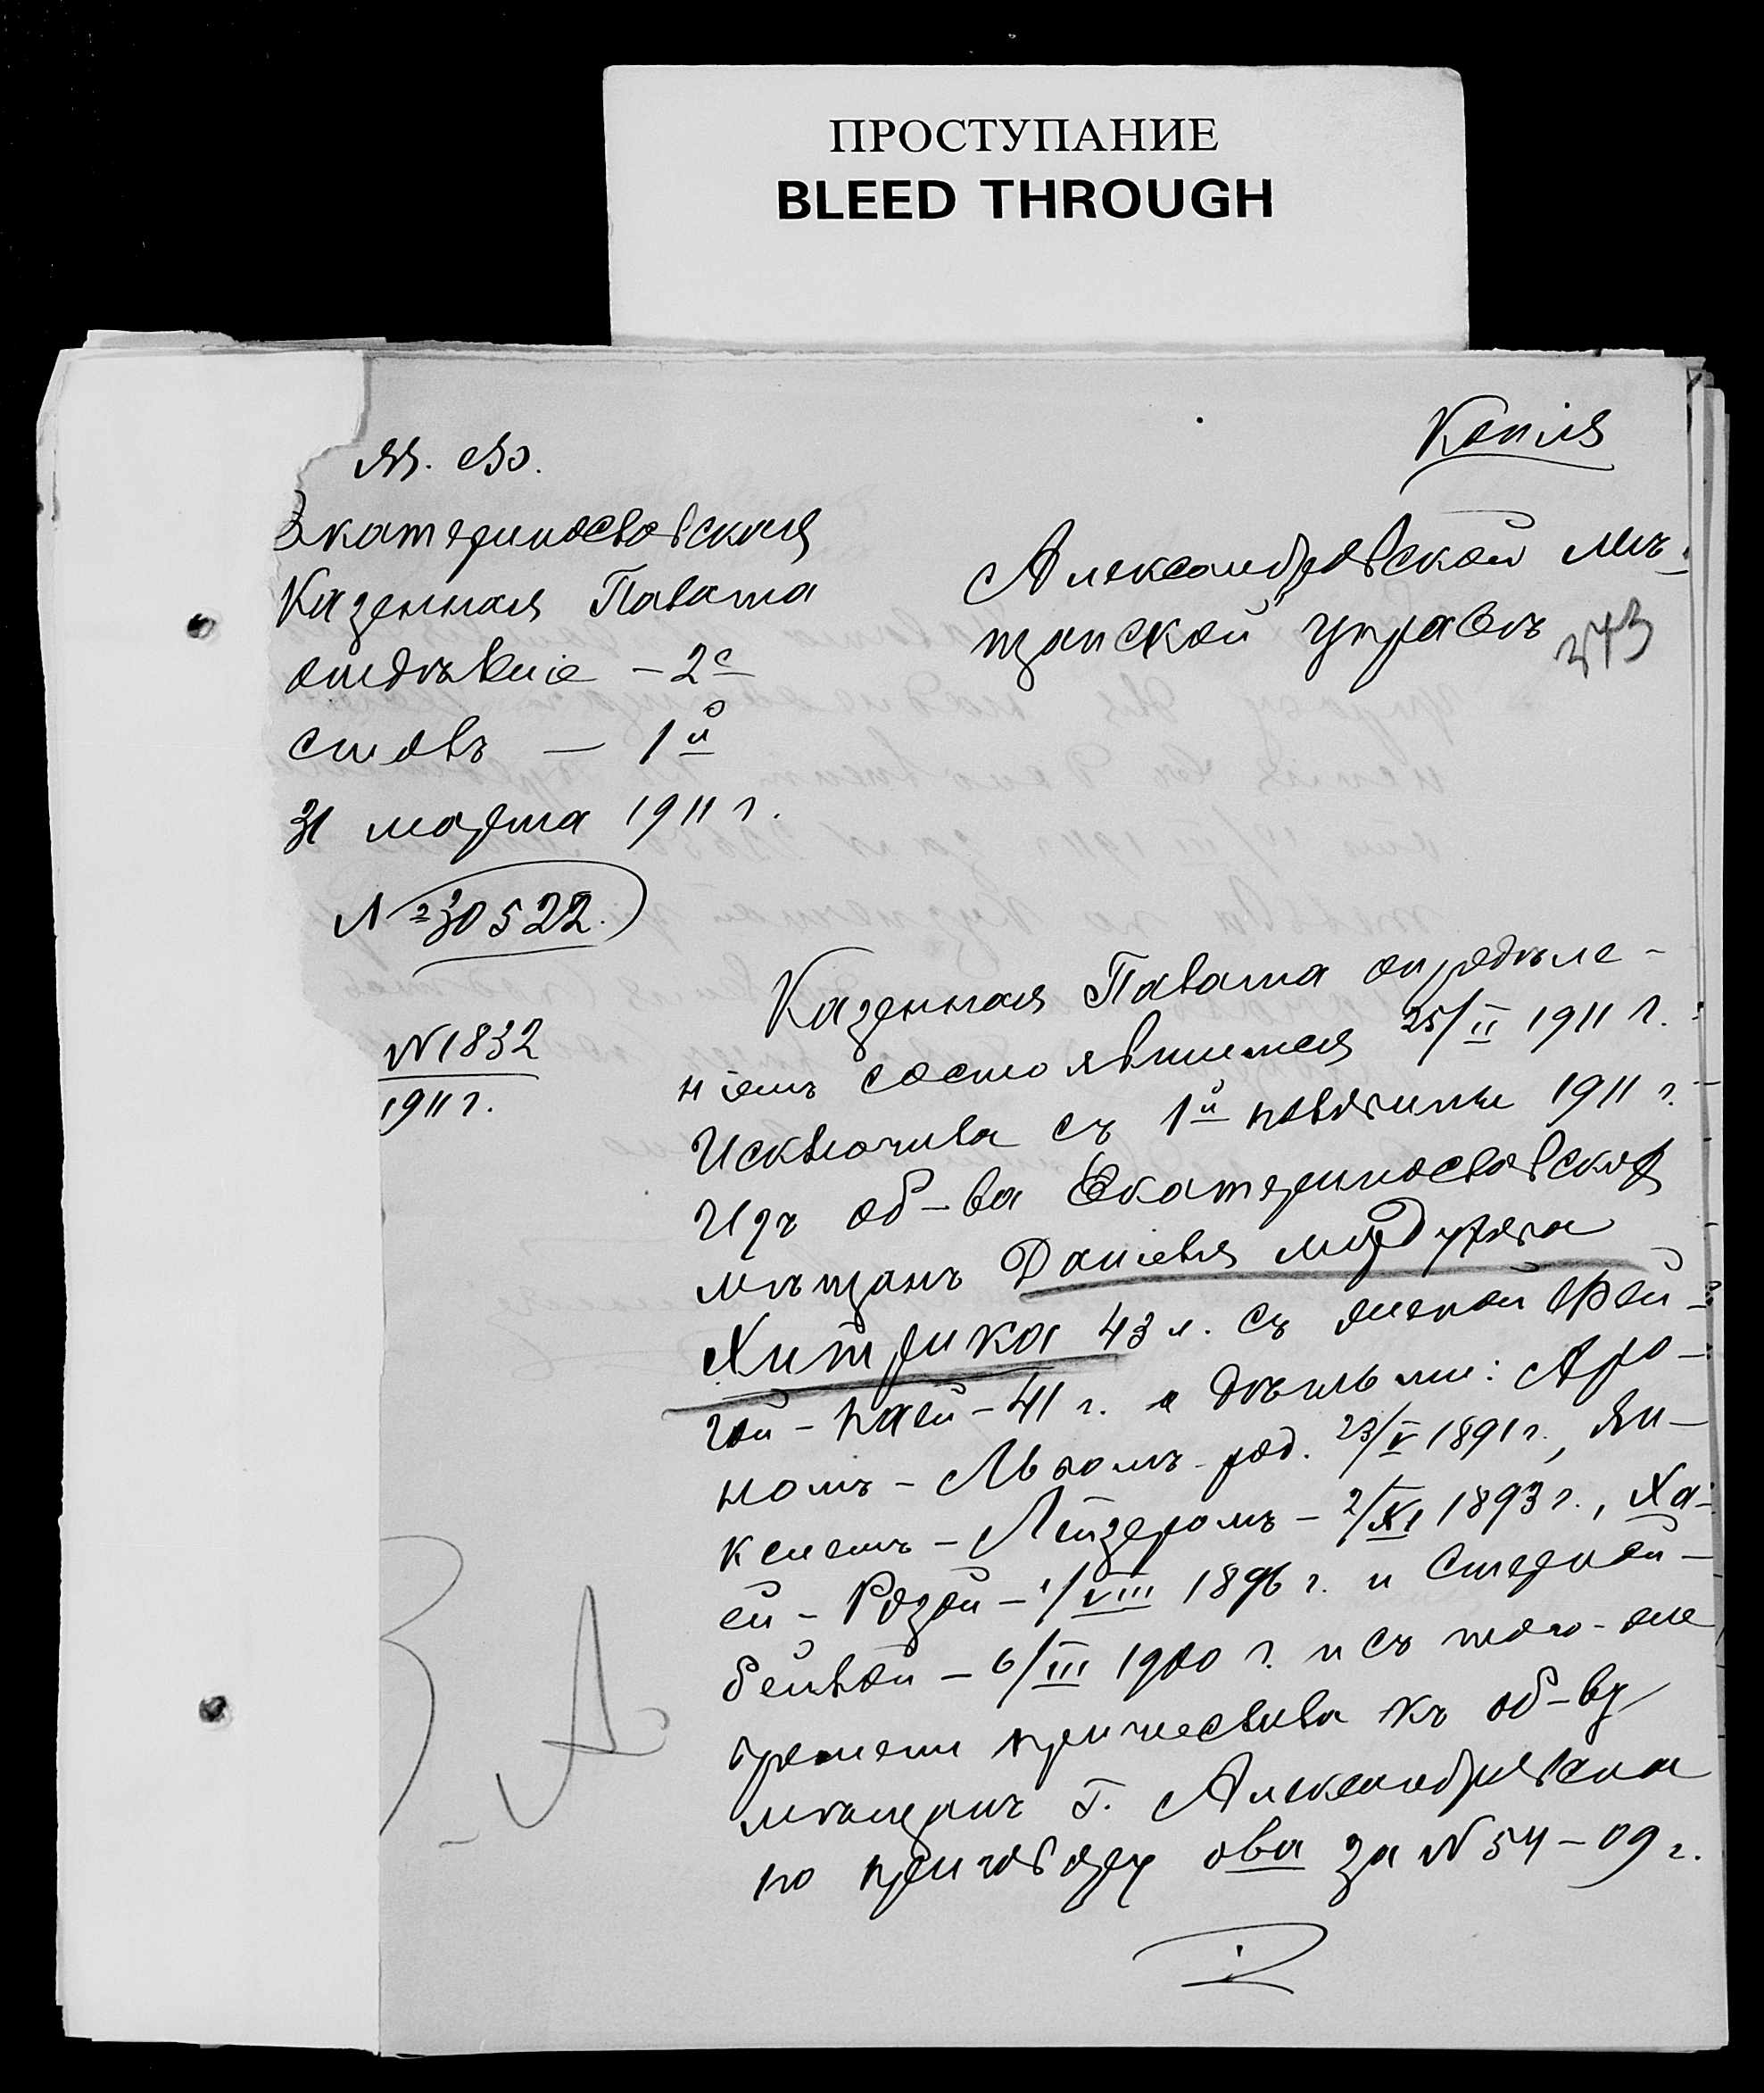 ПРОСТУПАНИЕ
BLEED THROUGH
Копія
М. Ф.
Екатеринославская
Казенная Палата
отдѣленіе – 2е
столъ – 1й
31 марта 1911 г.
№ 30522.
№ 1832
1911 г.
Александровской мѣ-
щанской управѣ
273
Казенная Палата опредѣле-
ніемъ состоявшимся 25/II 1911 г.
Исключила съ 1й половины 1911 г.
Изъ об-ва Екатеринославскихъ
мѣщанъ Даніеля
Хитрика 43 л. съ женой Фей-
гой-Паей – 41 г. и дѣтьми: Аро-
номъ – Львомъ род. 23/V 1891 г., Ян-
келемъ – Лейзеромъ – 2/XI 1893 г., Ха-
ей – Розой – 1/VIII 1896 г. и Стерной-
бейлой – 6/III 1900 г. и съ того-же
времени причислила къ об-ву
мѣщанъ г. Александровска
по приговору ова за № 54 – 09 г.